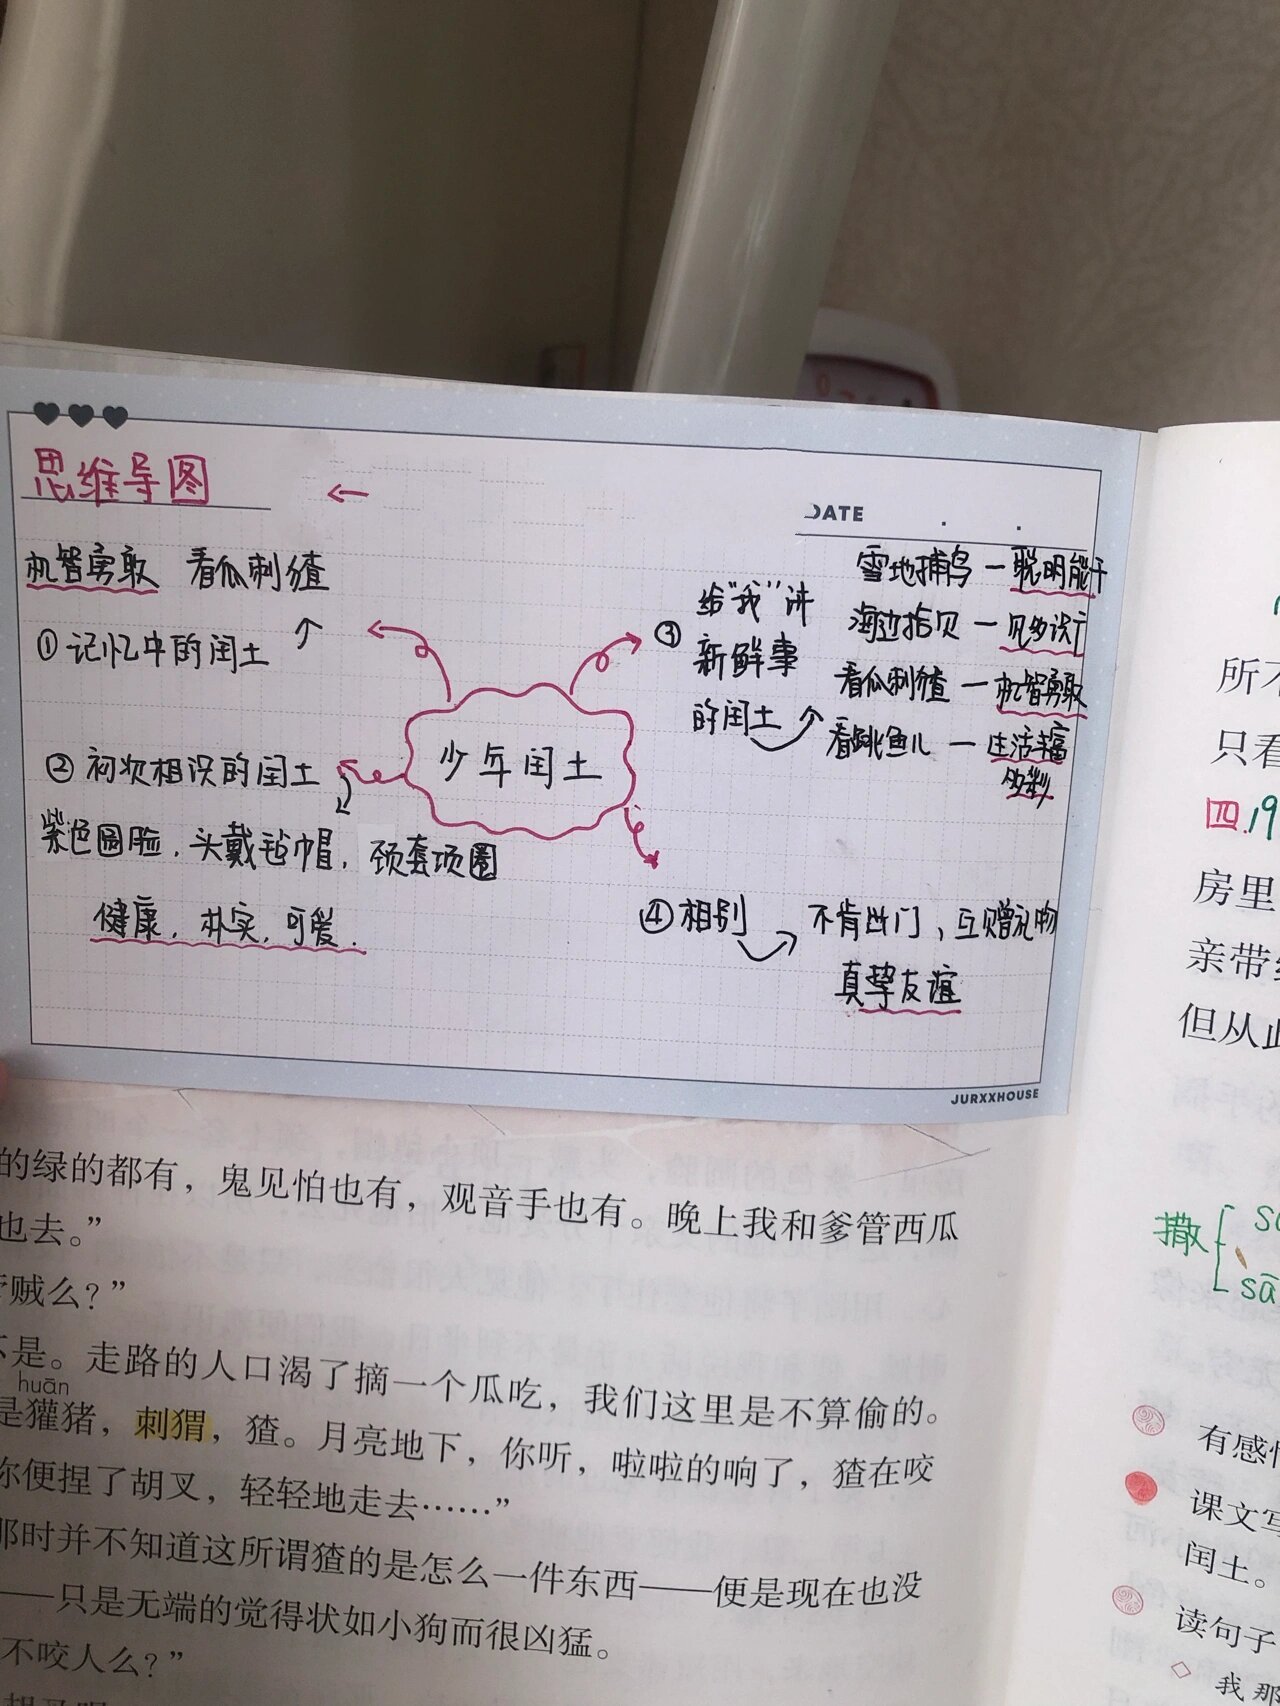 思维导图
DATE
机智勇敢 看瓜刺猹
①记忆中的闰土
②初次相识的闰土
紫色圆脸，头戴毡帽，颈套项圈
健康，朴实，可爱，
少年闰土
③给“我”讲
新鲜事
的闰土
雪地捕鸟—聪明能干
海边拾贝—见多识广
看瓜刺猹—机智勇敢
看跳鱼儿—生活丰富
多彩
④相别
不肯出门，互赠礼物
真挚友谊
JURXXHOUSE
的绿的都有，鬼见怕也有，观音手也有。晚上我和爹管西瓜
也去。”
贼么？”
不是。走路的人口渴了摘一个瓜吃，我们这里是不算偷的。
huān
是獾猪，刺猬，猹。月亮地下，你听，啦啦的响了，猹在咬
你便捏了胡叉，轻轻地走去……”
那时并不知道这所谓猹的是怎么一件东西——便是现在也没
——只是无端的觉得状如小狗而很凶猛。
不咬人么？”
所不
只看
四.19
房里
亲带
但从此
撒
sā
有感情
课文写
闰土。
读句子
我那